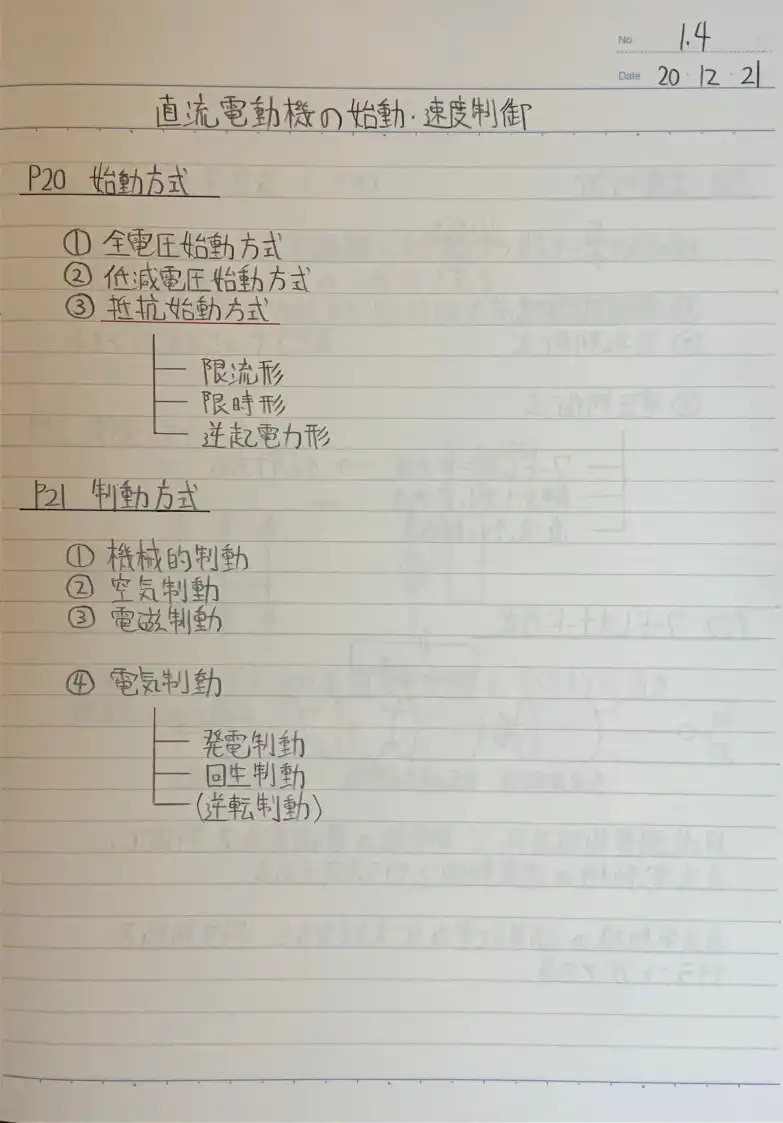 No 1.4
Date 20・12・21
直流電動機の始動・速度制御
P20 始動方式
① 全電圧始動方式
② 低減電圧始動方式
③ 抵抗始動方式
限流形
限時形
逆起電力形
P21 制動方式
① 機械的制動
② 空気制動
③ 電磁制動
④ 電気制動
発電制動
回生制動
(逆転制動)